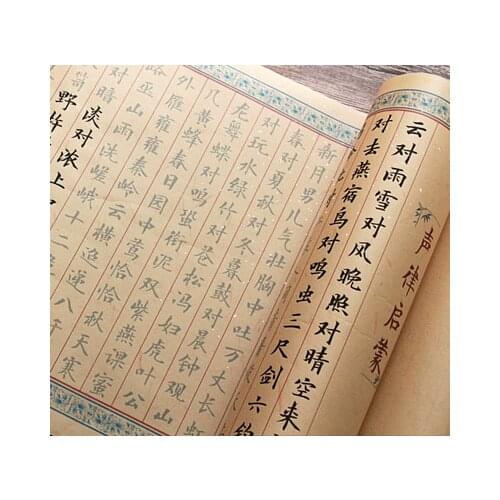 声律启蒙
云对雨雪对风晚照对晴空来
对去燕宿鸟对鸣虫三尺剑六钧
新月男儿气壮胸中吐万丈长虹
春对夏秋对冬暮鼓对晨钟观山
对玩水绿竹对苍松冯妇虎叶公
龙舞蝶对鸣蛩衔泥双紫燕课蜜
几黄蜂春日园中莺恰恰秋天寒
外雁雍雍秦岭云横迢递八千
巫山雨洗嵯峨十二
对暗淡对浓上
笥野杵